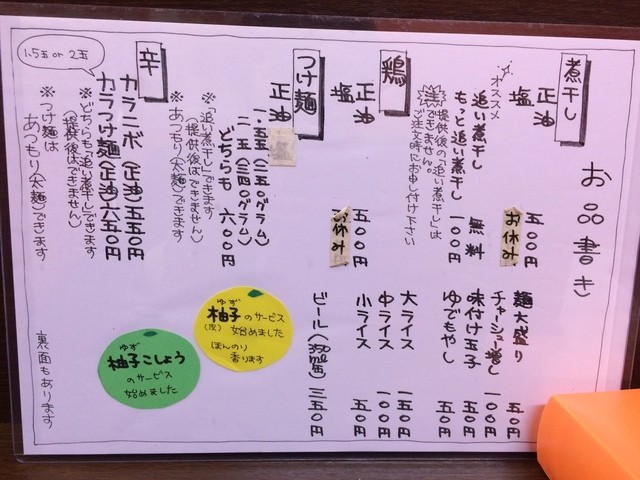 お品書き
煮干し
正油 五〇〇円
塩 お休み
オススメ
追い煮干し 無料
もっと追い煮干し 一〇〇円
※提供後の「追い煮干し」は
できません。
ご注文時にお申し付け下さい
鶏
正油 五〇〇円
塩 お休み
つけ麺
正油
一.五玉(二五〇グラム)
二玉(三四〇グラム)
どちらも 六〇〇円
※「追い煮干し」できます
(提供後はできません)
※あつもり(太麺)できます
辛
カラニボ(正油)五五〇円
カラつけ麺(正油)六五〇円
1.5玉 or 2玉
※どちらも「追い煮干し」できます
(提供後はできません)
※つけ麺は
あつもり(太麺)できます
麺大盛り 五〇円
チャーシュー増し 一〇〇円
味付け玉子 五〇円
ゆでもやし 五〇円
大ライス 一五〇円
中ライス 一〇〇円
小ライス 五〇円
ビール 三五〇円
ゆず
柚子のサービス
(皮)始めました
ほんのり
香ります
ゆず
柚子こしょう
のサービス
始めました
裏面もあります